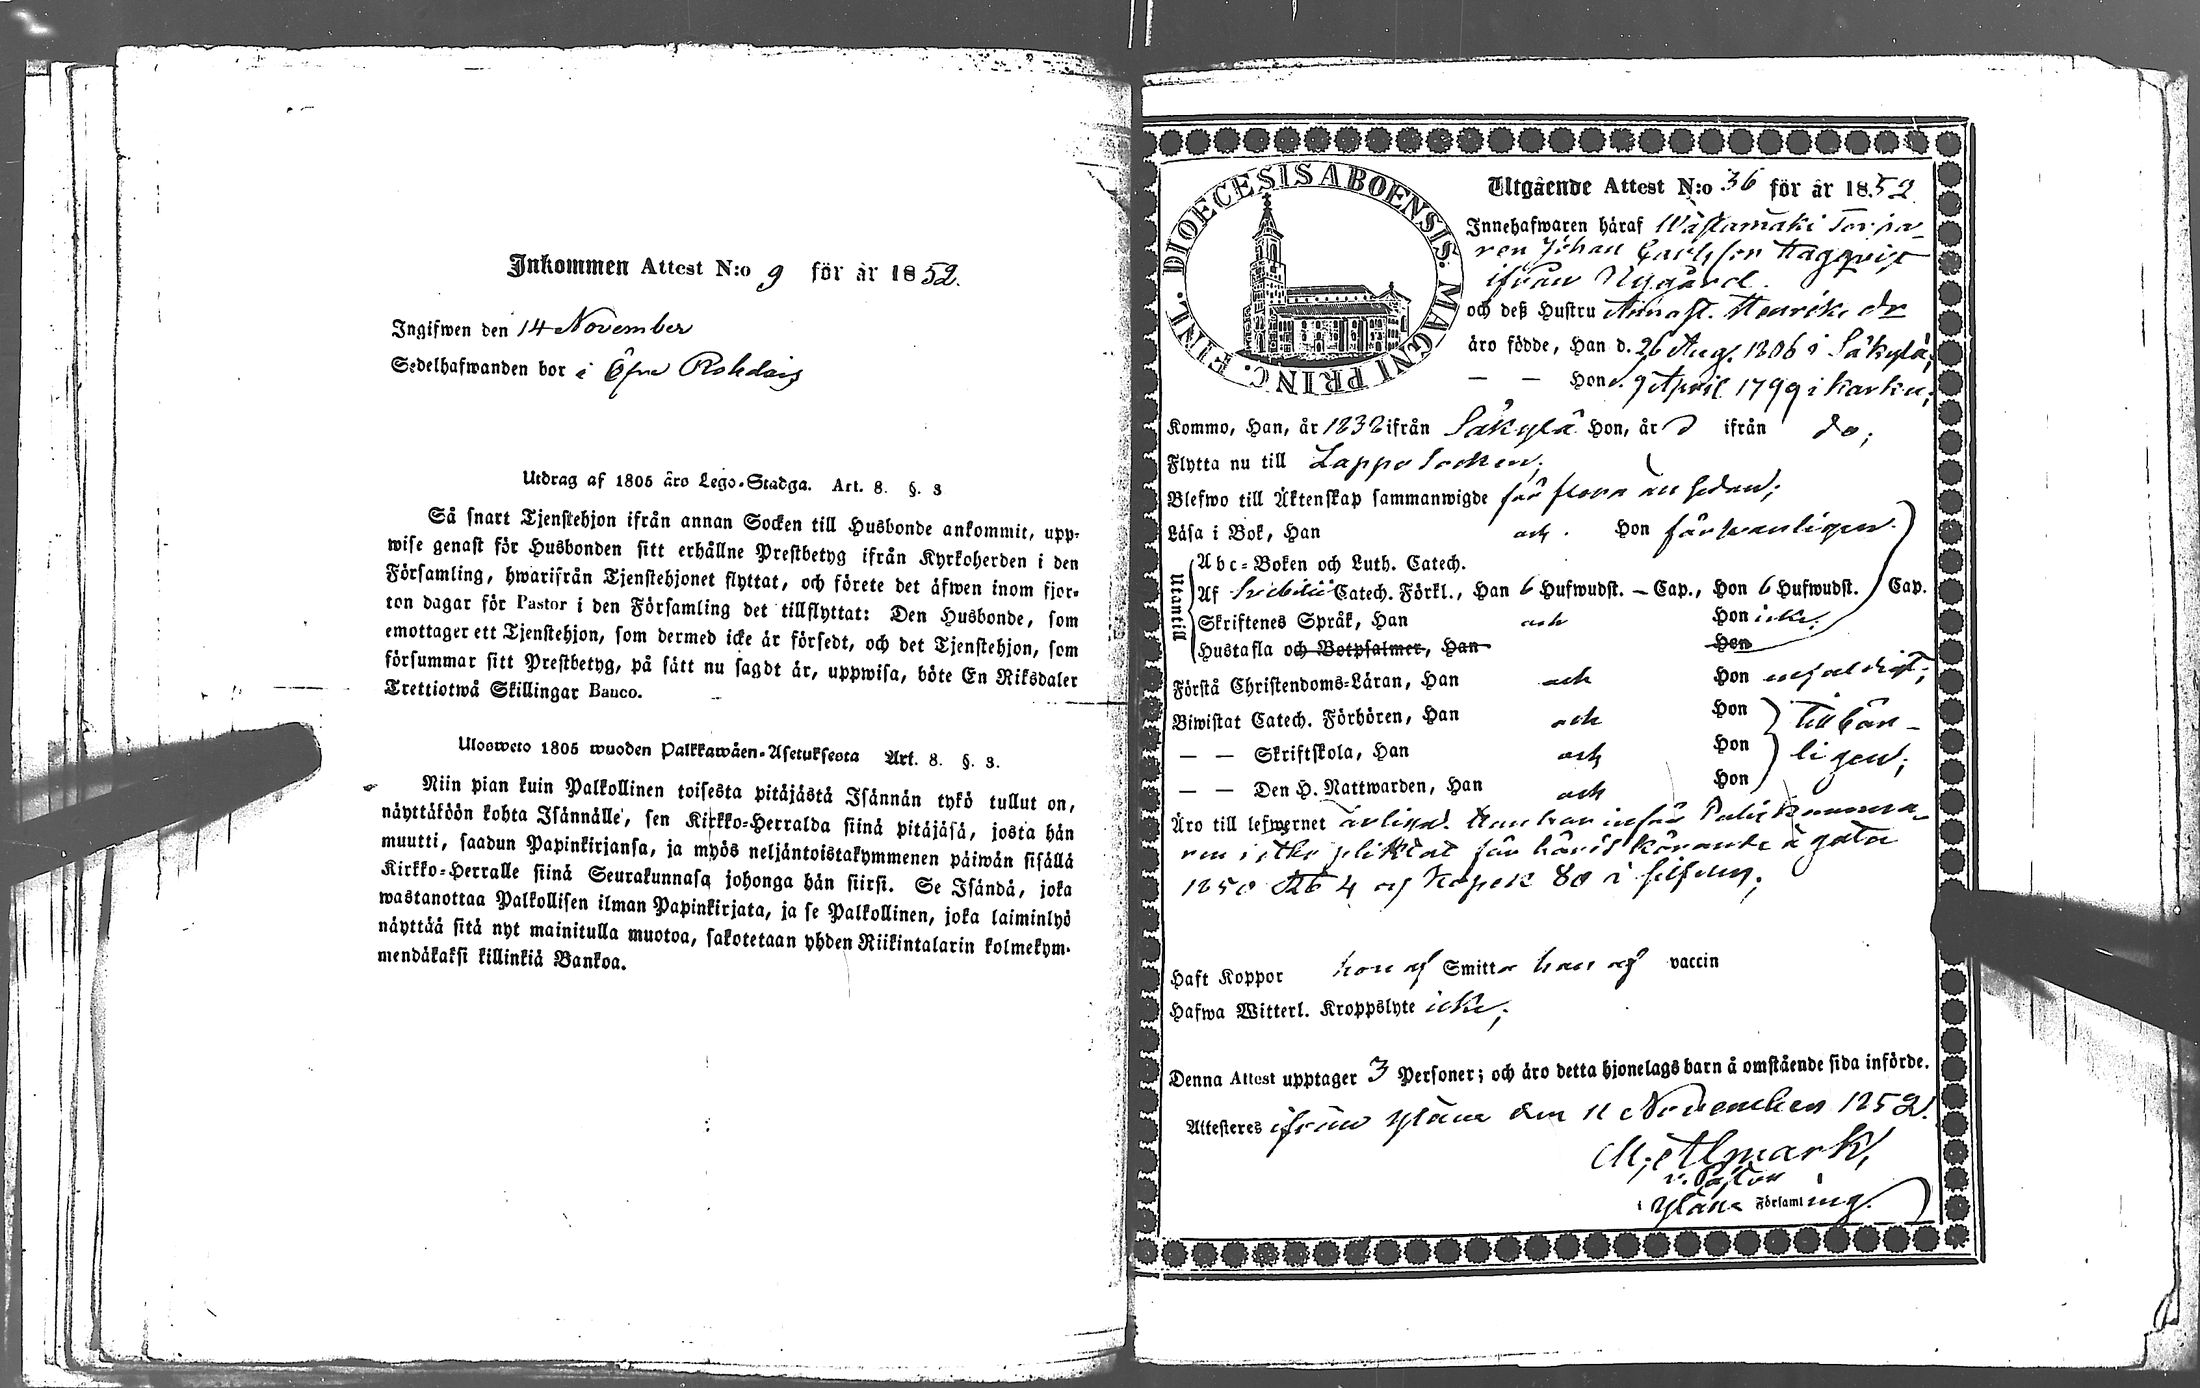 Inkommen Attest N:o 9 för år 1852.
Ingifwen den 14 November
Sedelhafwanden bor i Öfre
Utdrag af 1805 års Lego-Stadga. Art. 8. §. 3
Så snart Tjenstehjon ifrån annan Socken till Husbonde ankommit, upp-
wise genast för Husbonden sitt erhållne Prestbetyg ifrån Kyrkoherden i den
Församling, hwarifrån Tjenstehjonet flyttat, och förete det äfwen inom fjor-
ton dagar för Pastor i den Församling det tillflyttat: Den Husbonde, som
emottager ett Tjenstehjon, som dermed icke är försedt, och det Tjenstehjon, som
försummar sitt Prestbetyg, på sätt nu sagdt är, uppwisa, böte En Riksdaler
Trettiotwå Skillingar Banco.
Ulosweto 1805 wuoden Palkkawäen-Asetuksesta Art. 8. §. 3.
Niin pian kuin Palkollinen toisesta pitäjästä Isännän tykö tullut on,
näyttäköön kohta Isännälle, sen Kirkko-Herralda siinä pitäjäsä, josta hän
muutti, saadun Papinkirjansa, ja myös neljäntoistakymmenen päiwän sisällä
Kirkko-Herralle siinä Seurakunnasa johonga hän siirsi. Se Isändä, joka
wastanottaa Palkollisen ilman Papinkirjata, ja se Palkollinen, joka laiminlyö
näyttää sitä nyt mainitulla muotoa, sakotetaan yhden Riikintalarin kolmekym-
mendäkaksi killinkiä Bankoa.
DIOECESIS ABOENSIS. MAGNI PRINC. FINL.
Utgående Attest N:o 36 för år 1852
Innehafwaren häraf Torpa-
ren Johan Carlsson Hagqvist
ifrån Nygård.
och deß Hustru Anna St. Henriks dr
äro födde, Han d. 26 Aug. 1806 i Säkylä;
— — Hon d. 9 April 1799 i Karku;
Kommo, Han, år 1832 ifrån Säkylä Hon, år D ifrån do;
Flytta nu till Lappo Socken;
Blefwo till Äktenskap sammanwigde för flera år sedan;
Läsa i Bok, Han och Hon försvarligen.
Utantill
Abc-Boken och Luth. Catech.
Af Svebilii Catech. Förkl., Han 6 Hufwudst. — Cap., Hon 6 Hufwudst. Cap.
Skriftenes Språk, Han och Hon icke;
Hustafla och Botpsalmer, Han Hon
Förstå Christendoms-Läran, Han och Hon enfaldigt;
Biwistat Catech. Förhören, Han och Hon tillbör-
— — Skriftskola, Han och Hon ligen;
— — Den H. Nattwarden, Han och Hon
Äro till lefwernet ärliga. Han har inför
ren pliktat för å gata
1850 Rub 4 och Kopek 80 i silfver;
Haft Koppor hon af Smitto han af vaccin
Hafwa Witterl. Kroppslyte icke;
Denna Attest upptager 3 Personer; och äro detta hjonelags barn å omstående sida införde.
Attesteres ifrån Yläne den 11 November 1852.
M. Almark,
v. Pastor
i Yläne Församling.